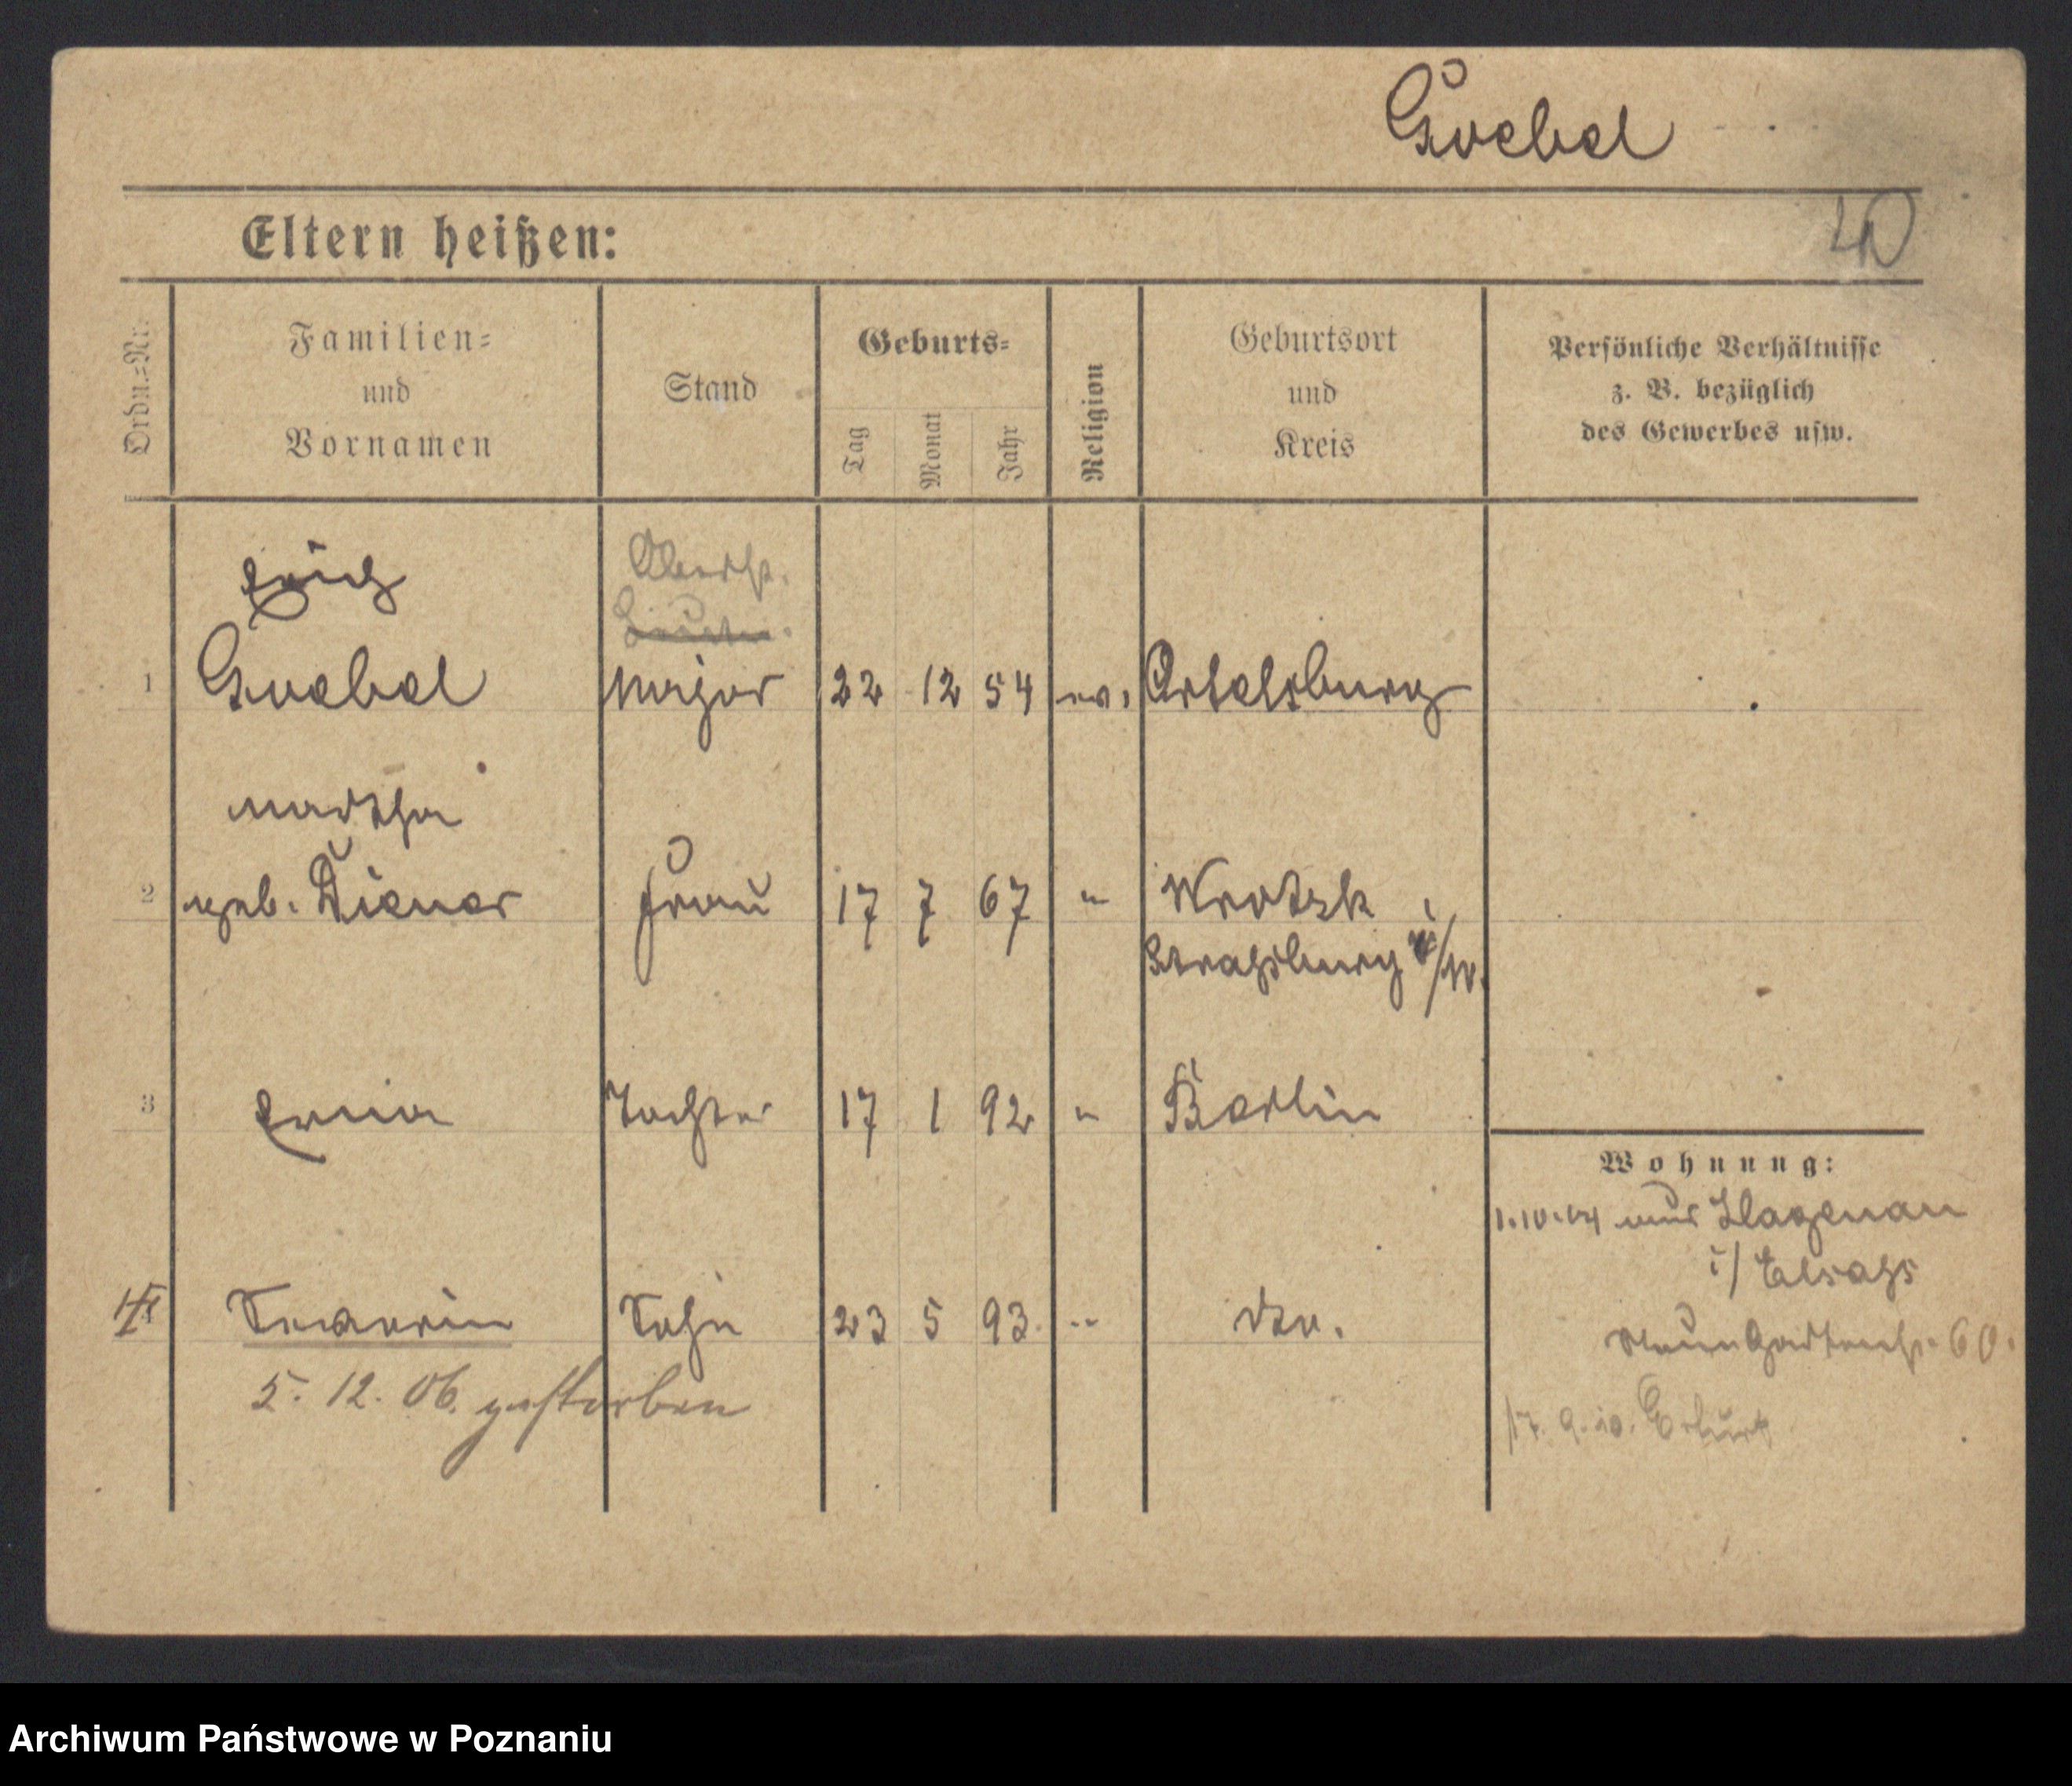 Goebel
Eltern heißen:
Ordn.=Nr.
Familien=
und
Vornamen
Stand
Geburts=
Tag
Monat
Jahr
Religion
Geburtsort
und
Kreis
Persönliche Verhältnisse
z. B. bezüglich
des Gewerbes usw.
Erich
Oberstl.
1 Goebel Major 22 12 54 ev. Ortelsburg
Martha
2 geb. Diener Frau 17 7 67 " Wrotzk
Strassburg
3 Erna Tochter 17 1 92 " Berlin
Wohnung:
1.10.04 aus Hagenau
i/ Elsass
4 Sohn 23 5 93 " dto.
60.
5. 12. 06. gestorben
17. 9. 10. Erfurt
Archiwum Państwowe w Poznaniu